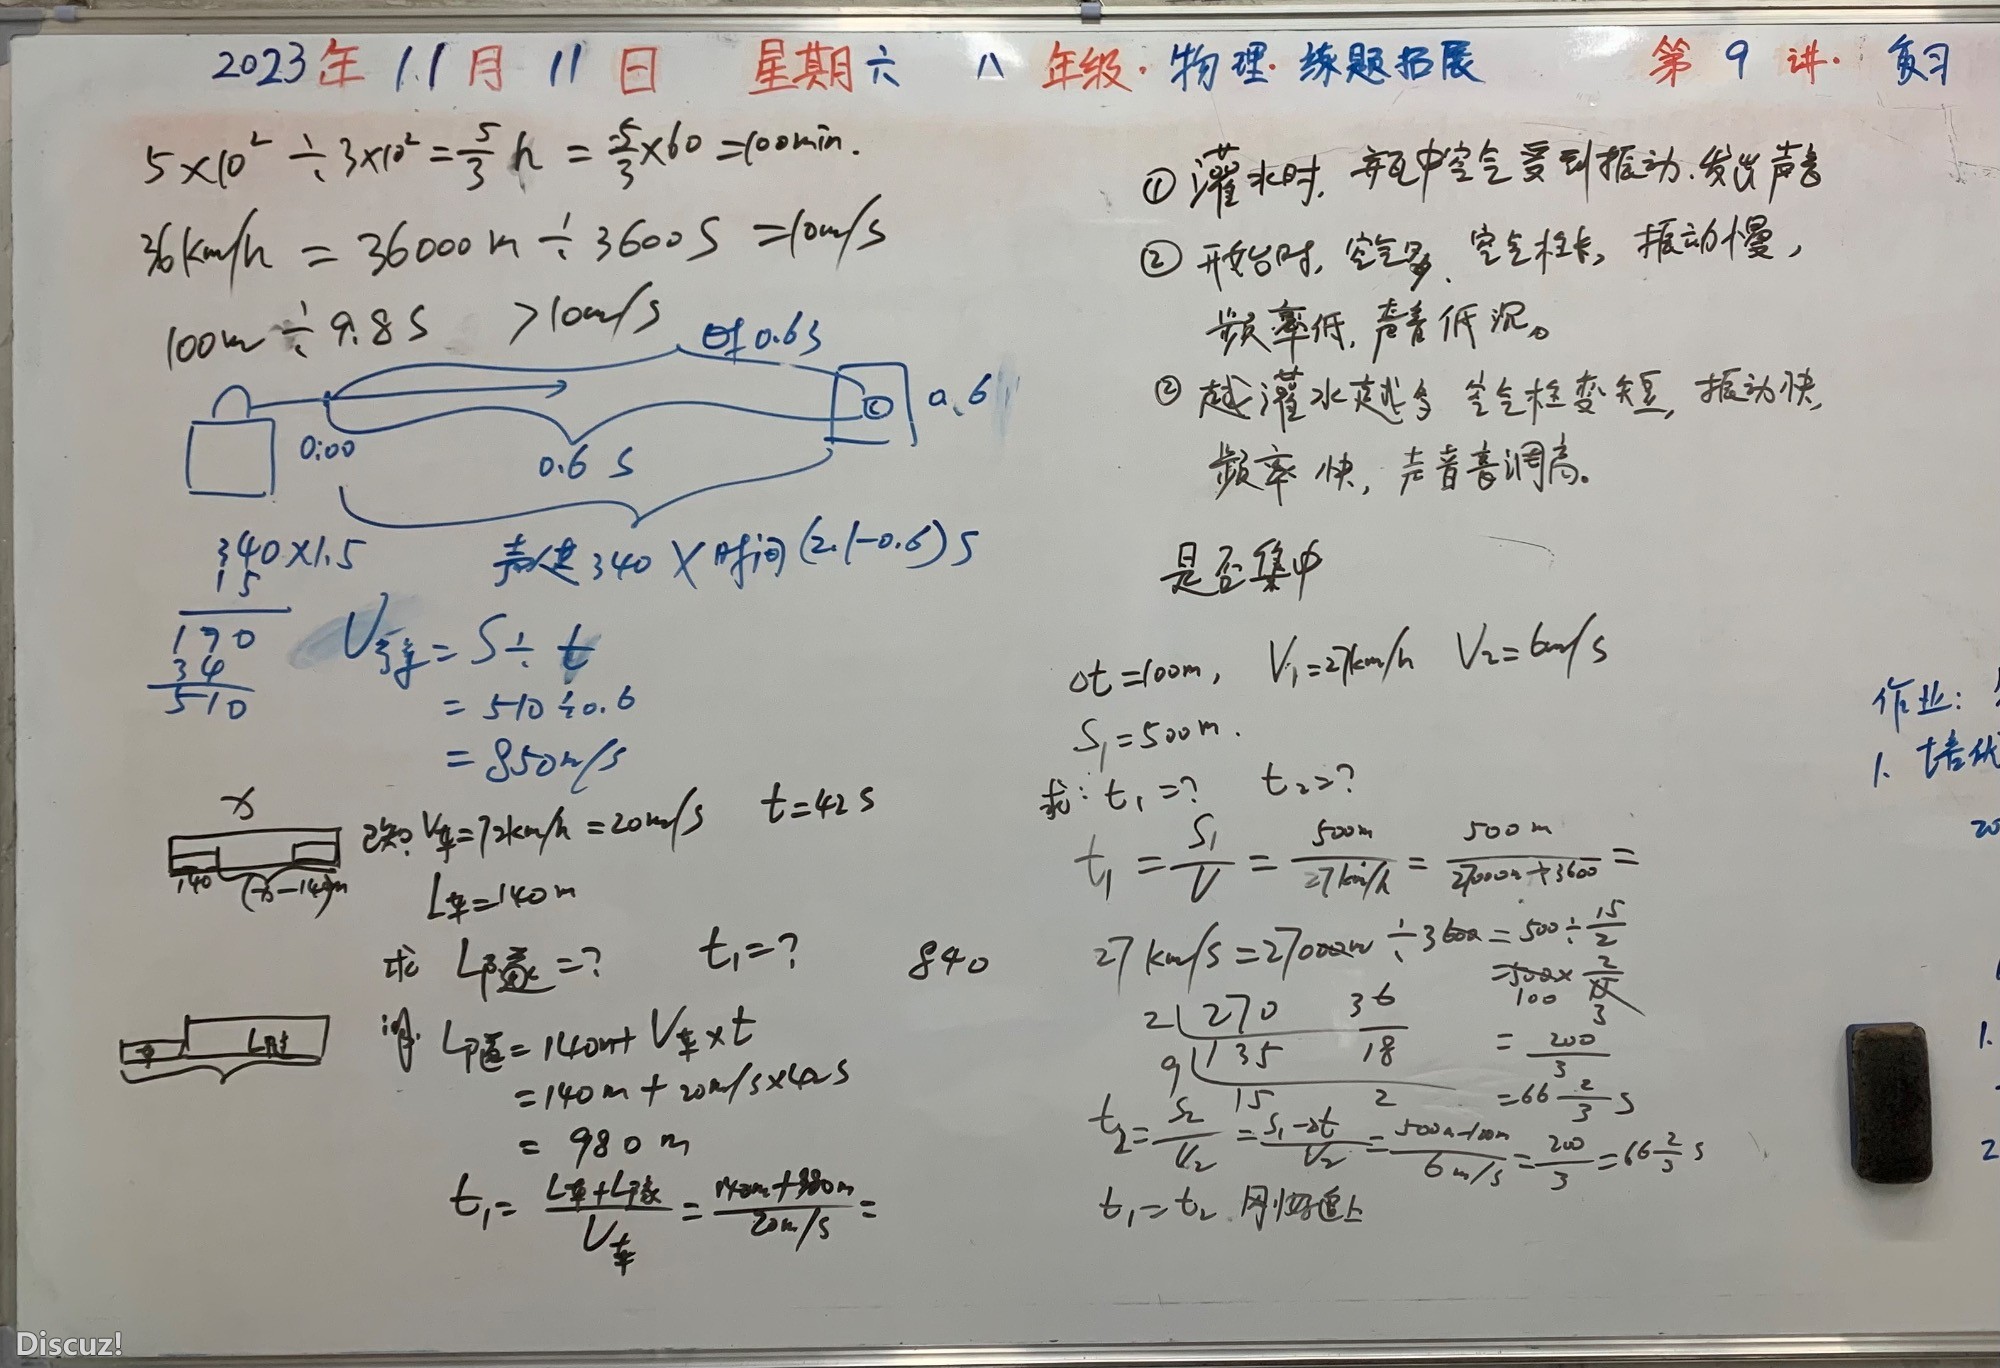 2023年11月11日 星期六 八年级·物理·练题拓展 第9讲·复习
5×10² ÷ 3×10² = 5/3 h = 5/3×60 =100min.
36km/h = 36000m ÷ 3600S =10m/s
100m ÷ 9.8S >10m/s
时0.6S
0.6
0:00
0.6 S
340×1.5
15
170
34
510
声速340×时间(2.1-0.6)S
V弹 = S÷t
= 510÷0.6
= 850m/s
x
140 (x-140)m
已知: V车=72km/h=20m/s t=42S
L车=140m
求 L隧=? t₁=?
840
L隧=140m+V车×t
=140m+20m/s×42S
= 980m
t₁= (L车+L隧)/V车 = (140m+980m)/20m/s =
①灌水时,瓶中空气受到振动.发出声音
②开始时,空气多,空气柱长,振动慢,
频率低,声音低沉。
③越灌水越多 空气柱变短,振动快,
频率快,声音音调高。
是否集中
△t=100m, V₁=27km/h V₂=6m/s
S₁=500m.
求: t₁=? t₂=?
t₁ = S₁/V = 500m/27km/h = 500m/27000m÷3600 =
27km/s=27000m÷3600 =500÷15/2
=500×2/15
100 3
2 270 36
9 135 18
15 2
= 200/3
=66 2/3 S
t₂= S₂/V₂ = (S₁-△t)/V₂ = (500m-100m)/6m/s = 200/3 =66 2/3 S
t₁=t₂ 刚好追上
作业:
1. 培优
20
1.
2
Discuz!